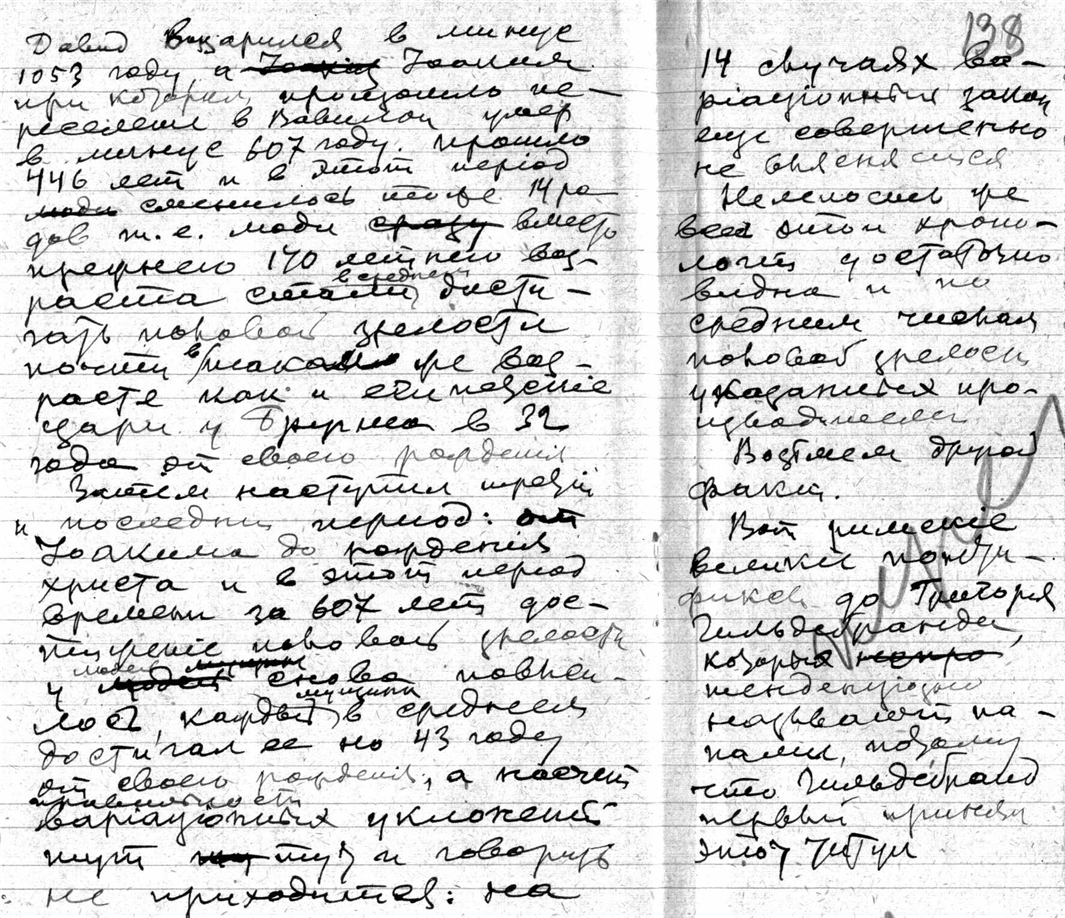 David воцарился в минус
1053 году, а Иоаким
при котором произошло пе-
реселение в Вавилон умер
в минус 607 году. прошло
446 лет и в этот период
сменилось тоже 14 ро-
дов т. е. люди сразу вместо
прежнего 140 летнего воз-
раста стали в среднем дости-
гать половой зрелости
почти в таком же воз-
расте как и египетскіе
цари у Бругша в 32
года от своего рождения
Затем наступил третій
и последній период: от
Иоакима до рождения
христа и в этот период
времени за 607 лет дос-
тижение половой зрелости
у людей снова повыси-
лось, каждый мущина в среднем
достигал ее на 43 году
от своего рождения, а насчет
правильности
варіаціонных уклонений
тут и говорить
не приходится: на
138
14 случаях ва-
ріаціонный закон
еще совершенно
не выяснится
Нелепость же
всей этой хроно-
логіи достаточно
видна и по
средним числам
половой зрелости
указанных про-
изводителей
Возьмем другой
факт.
Вот римскіе
великіе понти-
фикси до Григорія
Гильдебранда,
которых
тенденціозно
называют па-
пами, потому
что Гильдебранд
первый принял
этот титул